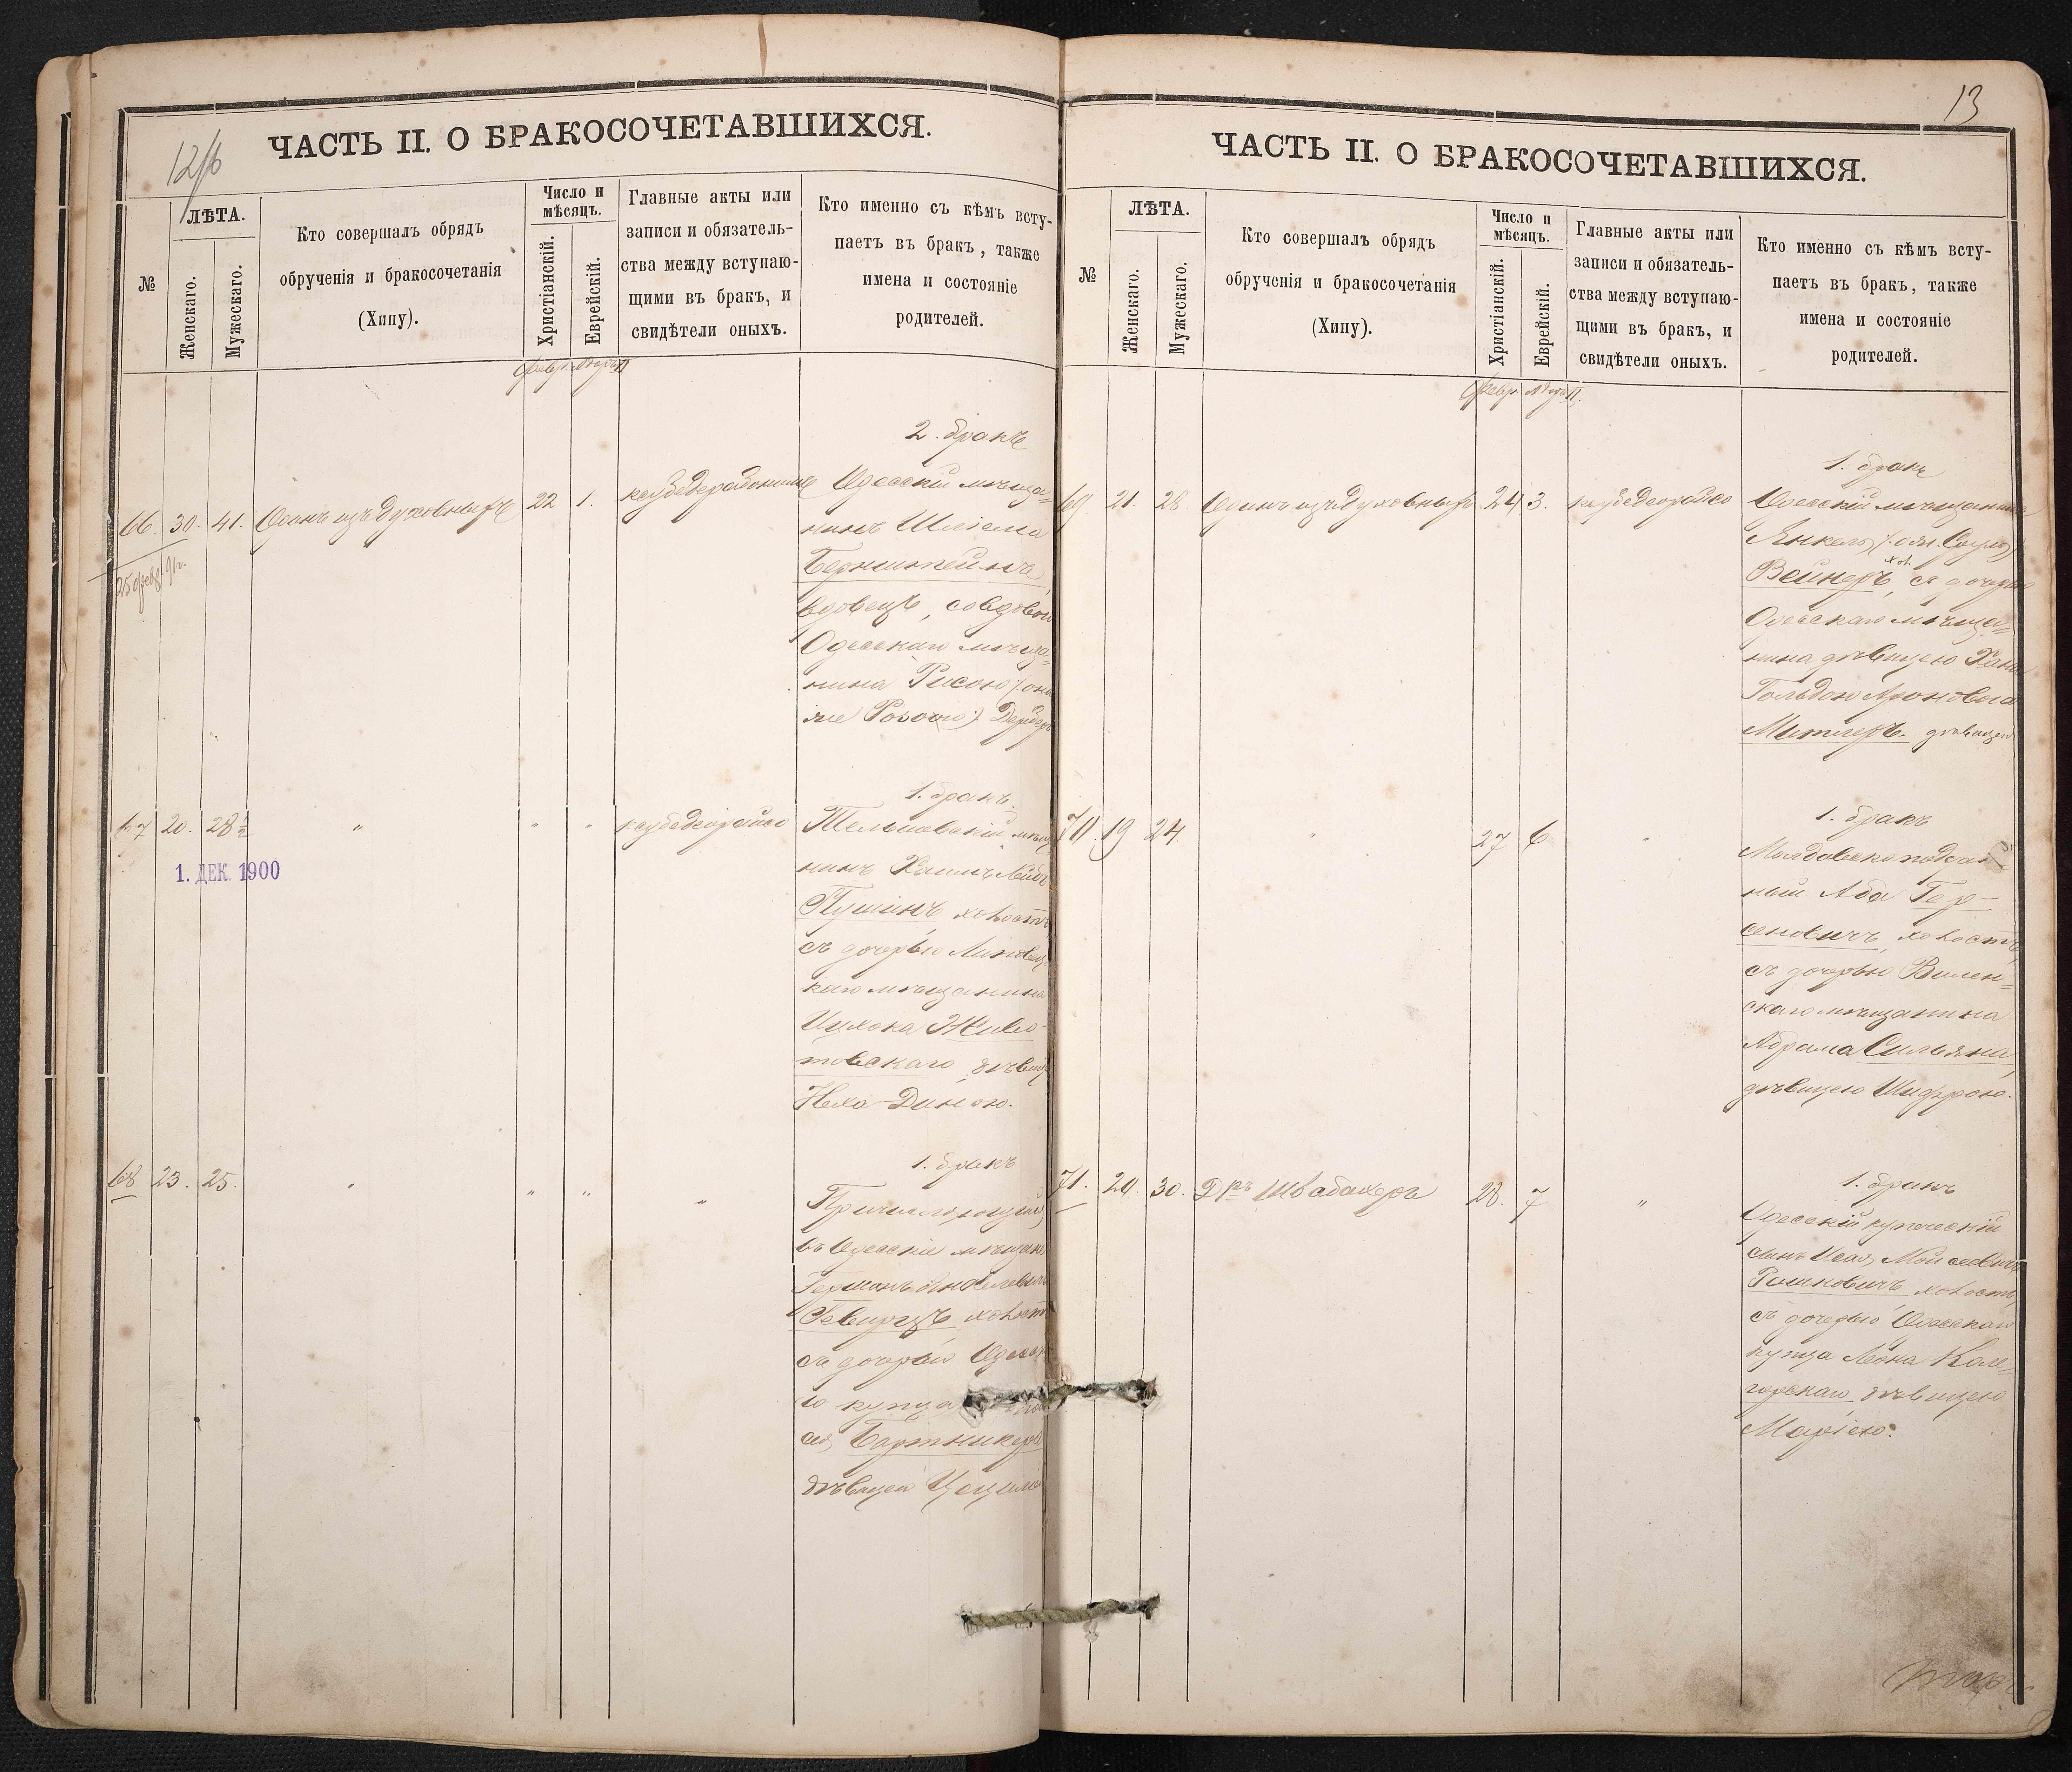 12/б
ЧАСТЬ II. О БРАКОСОЧЕТАВШИХСЯ.
№
ЛѢТА.
Женскаго.
Мужескаго.
Кто совершалъ обрядъ
обрученія и бракосочетанія
(Хипу).
Число и
мѣсяцъ.
Христіанскій.
Еврейскій.
Главные акты или
записи и обязатель-
ства между вступаю-
щими въ бракъ, и
свидѣтели оныхъ.
Кто именно съ кѣмъ всту-
паетъ въ бракъ, также
имена и состояніе
родителей.
Февр. Адаръ II
66. 30. 41. Одинъ изъ духовныхъ 22 1.
2. бракъ
Одесскій мѣща-
нинъ Шліома
Бернштейнъ,
вдовецъ, со вдовою
Одесскаго мѣща-
нина Рисою (: она
же Розою :)
67 20. 28½ " " "
1. ДЕК. 1900
1. бракъ.
нинъ Хаимъ Лейбъ
Пушинъ холостъ
съ дочерью Липовец-
каго мѣщанина
Ицхока Живо-
товскаго, дѣвиц
Неха-Диною.
68 23. 25. " " " "
1. бракъ
въ Одесскіе мѣщане
Германъ
Гевирцъ холост
съ дочерью Одесска
го купца
Бортникера
дѣвицей
13
ЧАСТЬ II. О БРАКОСОЧЕТАВШИХСЯ.
№
ЛѢТА.
Женскаго.
Мужескаго.
Кто совершалъ обрядъ
обрученія и бракосочетанія
(Хипу).
Число и
мѣсяцъ.
Христіанскій.
Еврейскій.
Главные акты или
записи и обязатель-
ства между вступаю-
щими въ бракъ, и
свидѣтели оныхъ.
Кто именно съ кѣмъ всту-
паетъ въ бракъ, также
имена и состояніе
родителей.
Февр. Адаръ II.
69 21. 28. Одинъ изъ духовныхъ 24 3.
1. бракъ
Одесскій мѣщанинъ
Янкель
Вейнеръ, хол. съ дочерью
Одесскаго мѣща-
нина дѣвицею Хана
Гольдою Ароновою
дѣвицею
70 19 24. " 27 6 "
1. бракъ
Молдавско поддан
ный Аба Гер-
сеновичъ, холостъ,
съ дочерью Вилен-
скаго мѣщанина
Абрама Сильяна,
дѣвицею Шифрою.
71. 24. 30. Дръ Швабахеръ 28. 7 "
1. бракъ
Одесскій купеческій
сынъ Исай Мойсеевичъ
холостъ,
съ дочерью Одесскаго
купца Леона Кале-
горскаго дѣвицею
Маріею.